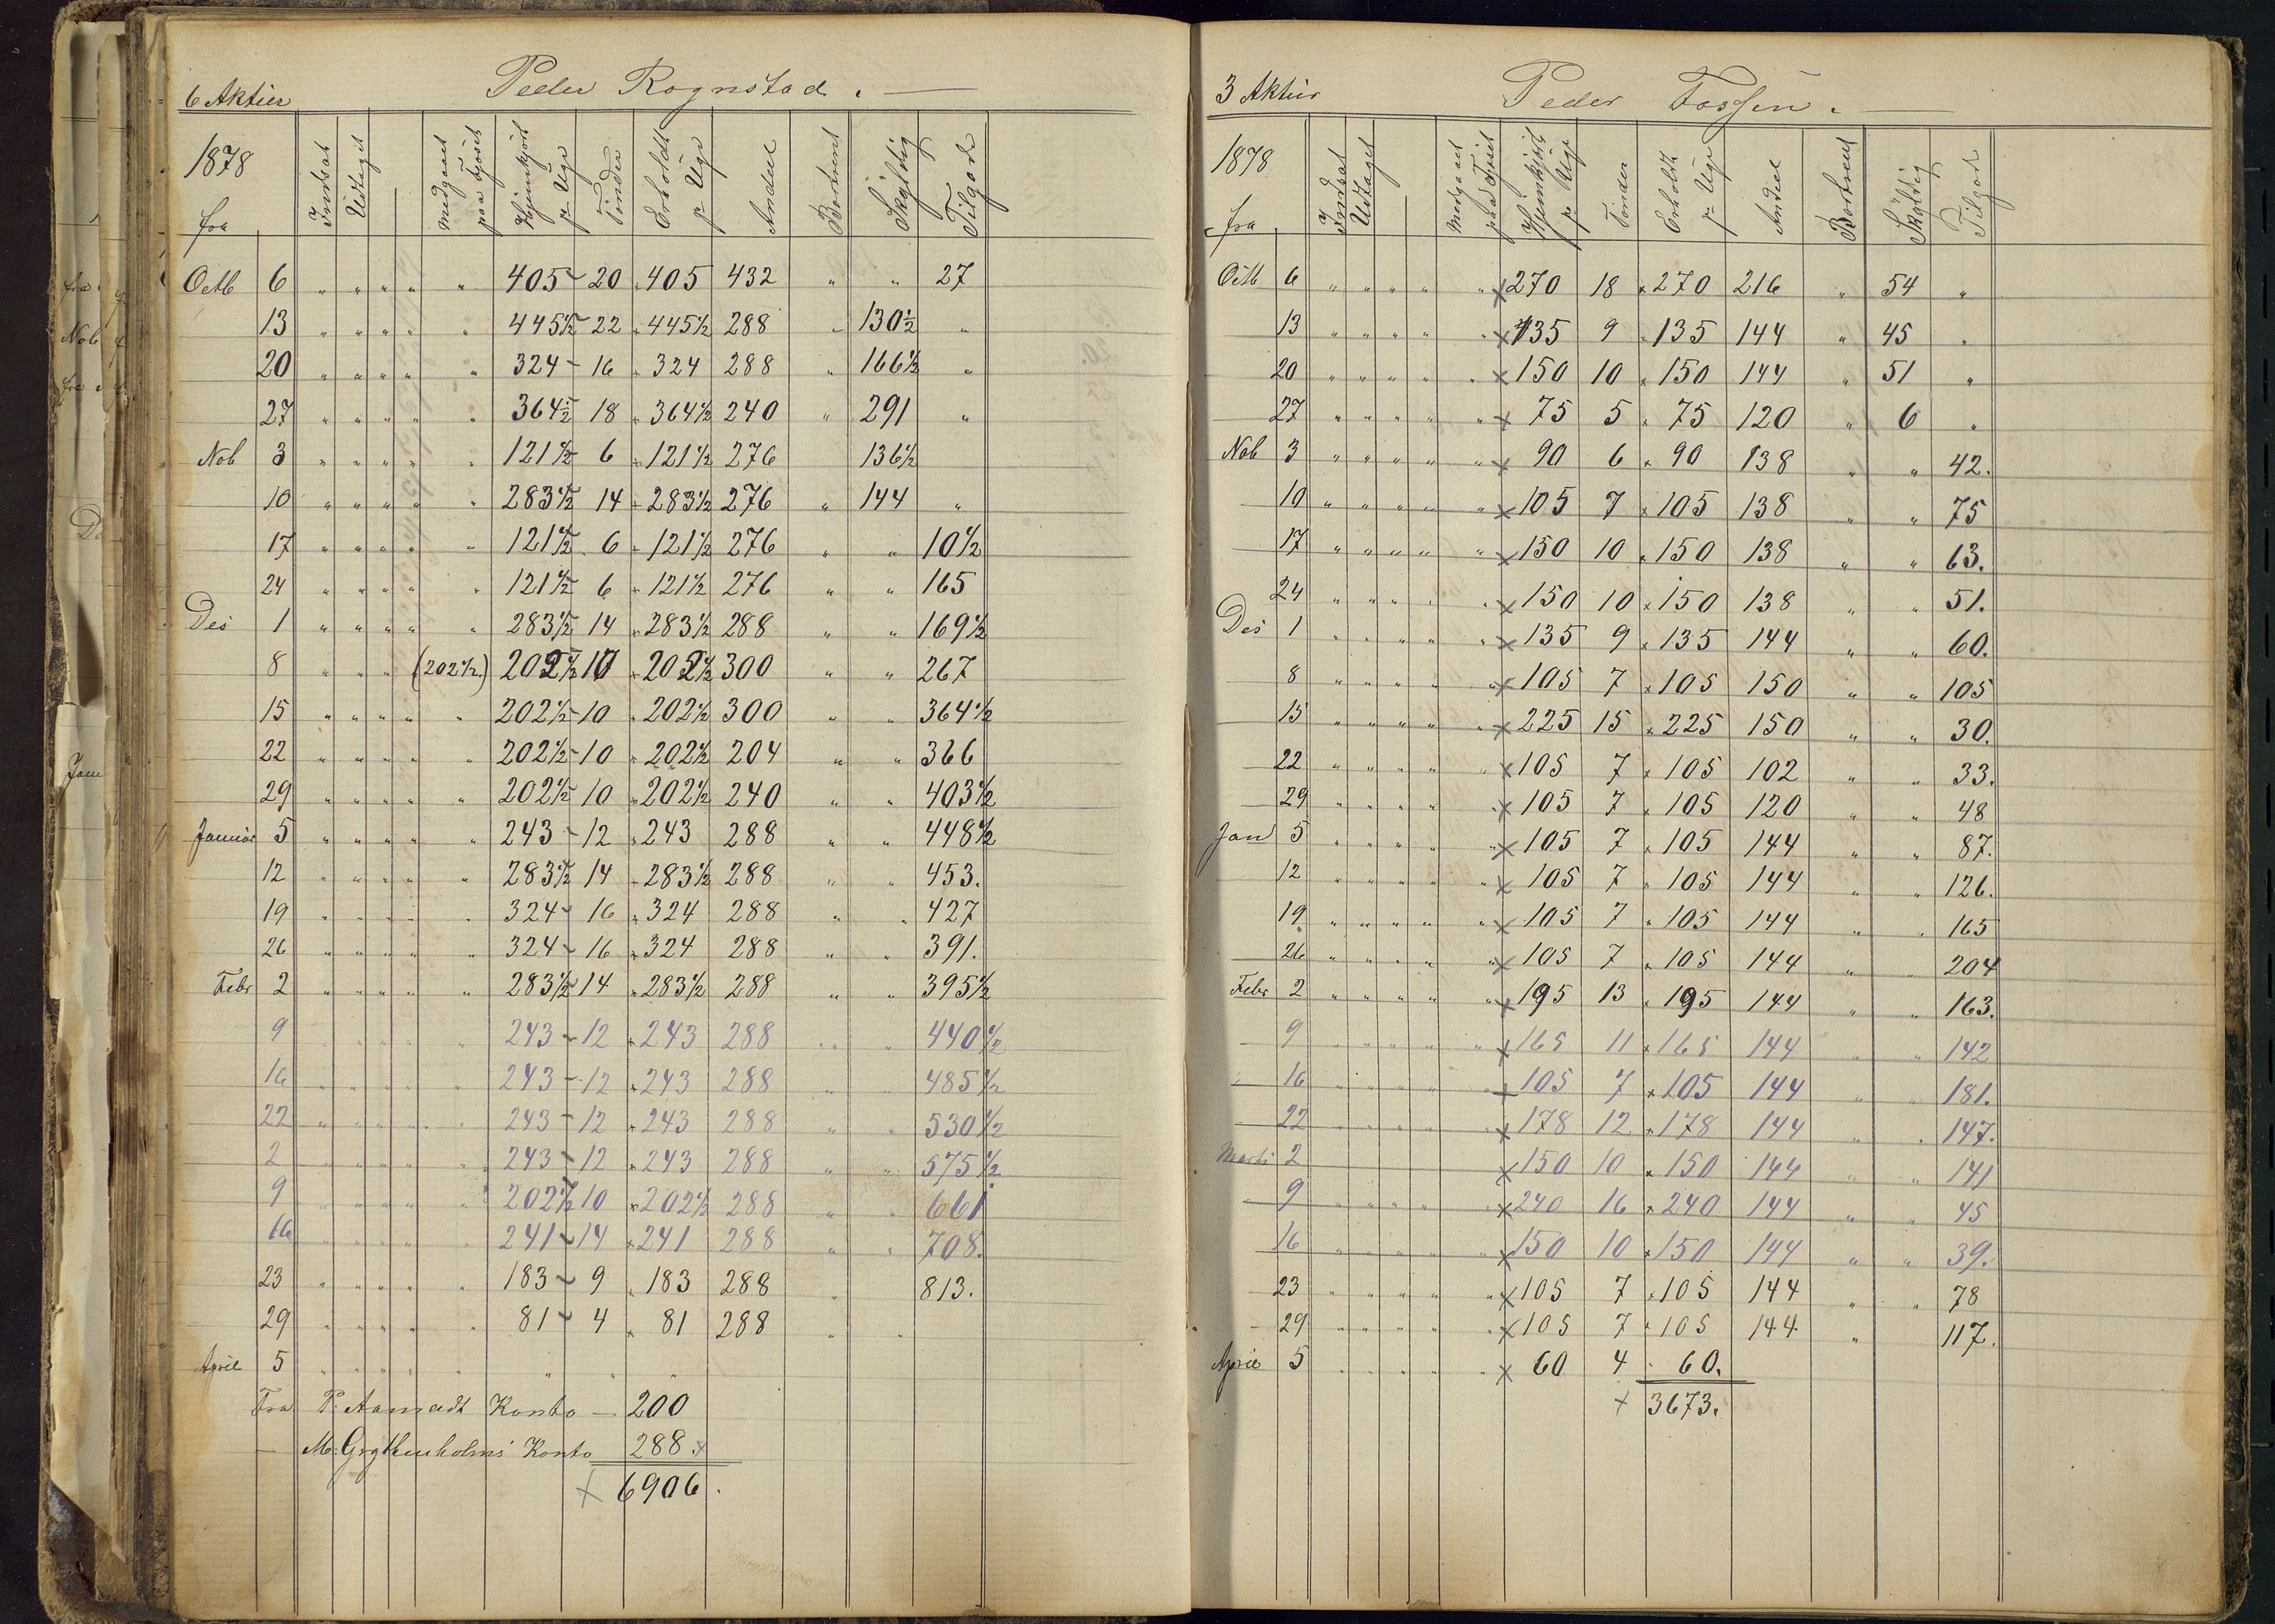 6 Aktier Peder Rognstad.
1878 Indsat Udtaget medgaaet paa Fjøset Hjemkjørt pr Uge Tønder Erholdt pr Uge Andeel Bortrent Skyldig Tilgode
fra
Octb 6 " " " " " 405 - 20 " 405 432 " " 27
13 " " " " " 445½ - 22 " 445½ 288 " 130½ "
20 " " " " " 324 - 16 " 324 288 " 166½ "
27 " " " " " 364½ 18 " 364½ 240 " 291 "
Nob 3 " " " " " 121½ - 6 " 121½ 276 136½
10 " " " " " 283½ 14 " 283½ 276 " 144 "
17 " " " " " 121½ 6 " 121½ 276 " " 10½
24 " " " " " 121½ 6 " 121½ 276 " " 165
Des 1 " " " " " 283½ 14 " 283½ 288 " " 169½
8 " " " (202½) 202½ 10 " 202½ 300 " " 267
15 " " " " " 202½ - 10 " 202½ 300 " " 364½
22 " " " " " 202½ - 10 " 202½ 204 " " 366
29 " " " " " 202½ 10 " 202½ 240 " " 403½
Januar 5 " " " " " 243 - 12 " 243 288 " " 448½
12 " " " " " 283½ 14 " 283½ 288 " " 453.
19 " " " " " 324 - 16 " 324 288 " " 427
26 " " " " " 324 - 16 " 324 288 " " 391.
Febr 2 " " " " " 283½ 14 " 283½ 288 " " 395½
9 " " " " " 243 - 12 " 243 288 " " 440½
16 " " " " " 243 - 12 " 243 288 " " 485½
22 " " " " " 243 - 12 " 243 288 " " 530½
2 " " " " " 243 - 12 " 243 288 " " 575½
9 " " " " " 202½ 10 " 202½ 288 " " 661
16 " " " " " 241 - 14 " 241 288 " " 708.
23 " " " " " 183 - 9 " 183 288 " 813.
29 " " " " " 81 - 4 " 81 288 " "
April 5 " " " " " " " "
Fra P. Aamodt Konto - 200
M. Grythenholms Konto 288 x
x 6906.
3 Aktier Peder Fossen.
1878 Indsat Udtaget Medgaaet paa Fjøset Hjemkjørt pr Uge Tønder Erholdt pr Uge Andeel Bortrent Skyldig Tilgode
fra
Octb 6 " " " " " x 270 18 " 270 216 " 54 "
13 " " " " " x 135 9 " 135 144 " 45 "
20 " " " " " x 150 10 " 150 144 " 51 "
27 " " " " " x 75 5 " 75 120 " 6 "
Nob 3 " " " " " x 90 6 " 90 138 " " 42.
10 " " " " " x 105 7 " 105 138 " " 75
17 " " " " " x 150 10 " 150 138 " " 63.
24 " " " " " x 150 10 " 150 138 " " 51.
Des 1 " " " " " x 135 9 " 135 144 " " 60.
8 " " " " " x 105 7 " 105 150 " " 105
15 " " " " " x 225 15 " 225 150 " " 30.
22 " " " " " x 105 7 " 105 102 " " 33.
29 " " " " " x 105 7 " 105 120 " " 48
Jan 5 " " " " " x 105 7 " 105 144 " " 87.
12 " " " " " x 105 7 " 105 144 " " 126.
19 " " " " " x 105 7 " 105 144 " " 165
26 " " " " " x 105 7 " 105 144 " " 204
Febr 2 " " " " " x 195 13 " 195 144 " " 163.
9 " " " " " x 165 11 " 165 144 " " 142
16 " " " " " x 105 7 " 105 144 " " 181.
22 " " " " " x 178 12 " 178 144 " " 147.
Marts 2 x 150 10 " 150 144 " " 141
9 " " " " " x 240 16 " 240 144 " " 45
16 " " " " " x 150 10 " 150 144 " " 39.
23 " " " " " x 105 7 " 105 144 " " 78
29 " " " " " x 105 7 " 105 144 " 117.
April 5 " " " " " x 60 4 " 60.
x 3673.